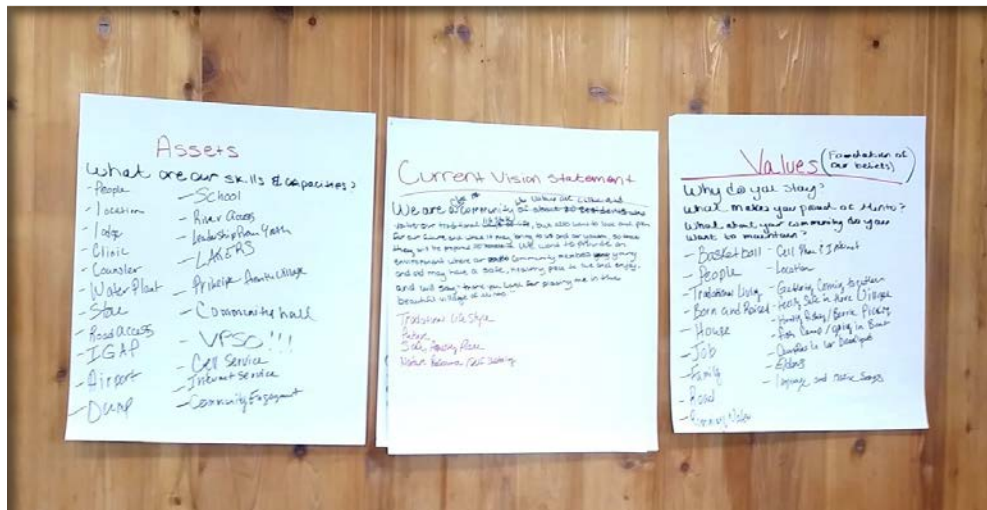 Assets
What are our skills & capacities?
- People
- Location
- Lodge
- Clinic
- Counsler
- Water Plant
- Store
- Road access
- IGAP
- Airport
- Dump
- School
- River access
- Leadership from Youth
- LAKERS
- Village
- Community hall
- VPSO!!!
- Cell Service
- Internet Service
- Community Engagement
Current Vision Statement
We are a community of about
value our traditional but also want to look and plan
for our future, and what it may bring to us and our so that
they will be We want to provide an
environment where our community members young
and old may have a safe, healthy place to live and enjoy.
and will say "thank you Lord for placing me in this
beautiful village of Minto."
Traditional Life Style
Future
Safe, Healthy Place
Values (Foundation of our beliefs)
Why do you stay?
What makes you proud of Minto?
What about your community do you
want to maintain?
- Basketball
- People
- Traditional Living
- Born and Raised
- House
- Job
- Family
- Road
- Running Water
- Cell Phone & Internet
- Location
- Gathering Coming together
- Feeling Safe in Home Village
- Hunting Fishing / Berrie Picking
- Fish Camp / going in Boat
- Elders
- language and Native Songs